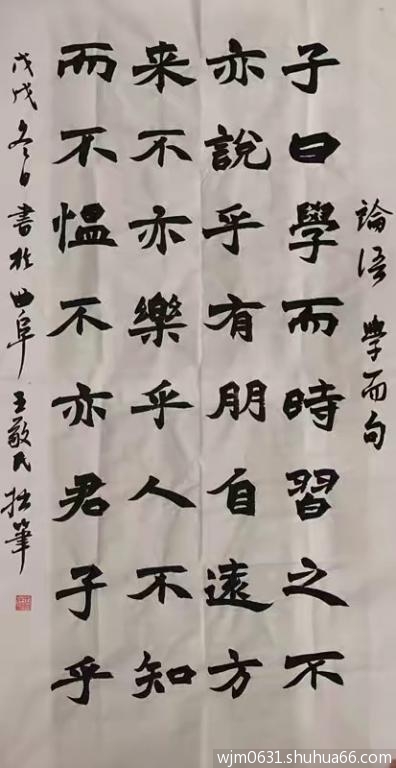 論語 學而句
子曰學而時習之不
亦說乎有朋自遠方
来不亦樂乎人不知
而不愠不亦君子乎
戊戌冬日書於曲阜王敬民拙筆
wjm0631.shuhua66.com